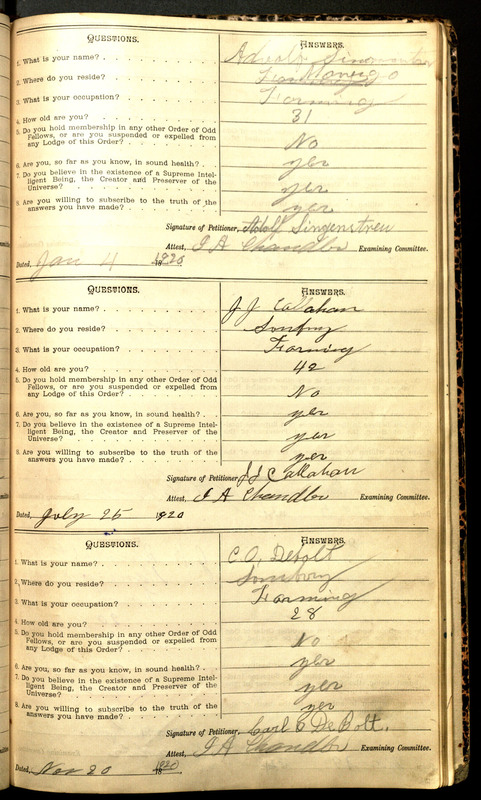 QUESTIONS. ANSWERS.
1. What is your name?
2. Where do you reside?
3. What is your occupation? Farming
4. How old are you? 31
5. Do you hold membership in any other Order of Odd
Fellows, or are you suspended or expelled from
any Lodge of this Order? No
6. Are you, so far as you know, in sound health? yes
7. Do you believe in the existence of a Supreme Intel-
ligent Being, the Creator and Preserver of the
Universe? yes
8. Are you willing to subscribe to the truth of the
answers you have made? yes
Signature of Petitioner, Adolf Singenstreu
Attest, I A Chandler Examining Committee.
Dated, Jan 4 1920
QUESTIONS. ANSWERS.
1. What is your name? J J Callahan
2. Where do you reside?
3. What is your occupation? Farming
4. How old are you? 42
5. Do you hold membership in any other Order of Odd
Fellows, or are you suspended or expelled from
any Lodge of this Order? No
6. Are you, so far as you know, in sound health? yes
7. Do you believe in the existence of a Supreme Intel-
ligent Being, the Creator and Preserver of the
Universe? yes
8. Are you willing to subscribe to the truth of the
answers you have made? yes
Signature of Petitioner, J J Callahan
Attest, I A Chandler Examining Committee.
Dated, July 25 1920
QUESTIONS. ANSWERS.
1. What is your name? C O Debolt
2. Where do you reside?
3. What is your occupation? Farming
4. How old are you? 28
5. Do you hold membership in any other Order of Odd
Fellows, or are you suspended or expelled from
any Lodge of this Order? No
6. Are you, so far as you know, in sound health? yes
7. Do you believe in the existence of a Supreme Intel-
ligent Being, the Creator and Preserver of the
Universe? yes
8. Are you willing to subscribe to the truth of the
answers you have made? yes
Signature of Petitioner, Carl O DeBolt.
Attest, I A Chandler Examining Committee.
Dated, Nov 20 1920